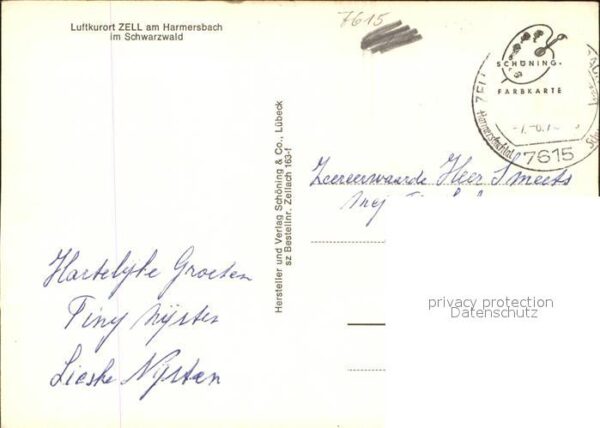 Luftkurort ZELL am Harmersbach
im Schwarzwald
7615
SCHÖNING
FARBKARTE
ZELL
7615
Hersteller und Verlag Schöning & Co., Lübeck
sz Bestellnr. Zellach 163-f
Zeereerwaarde Heer Smeets
Hartelijke Groeten
Tiny Nijsten
Lieske Nijsten
privacy protection
Datenschutz